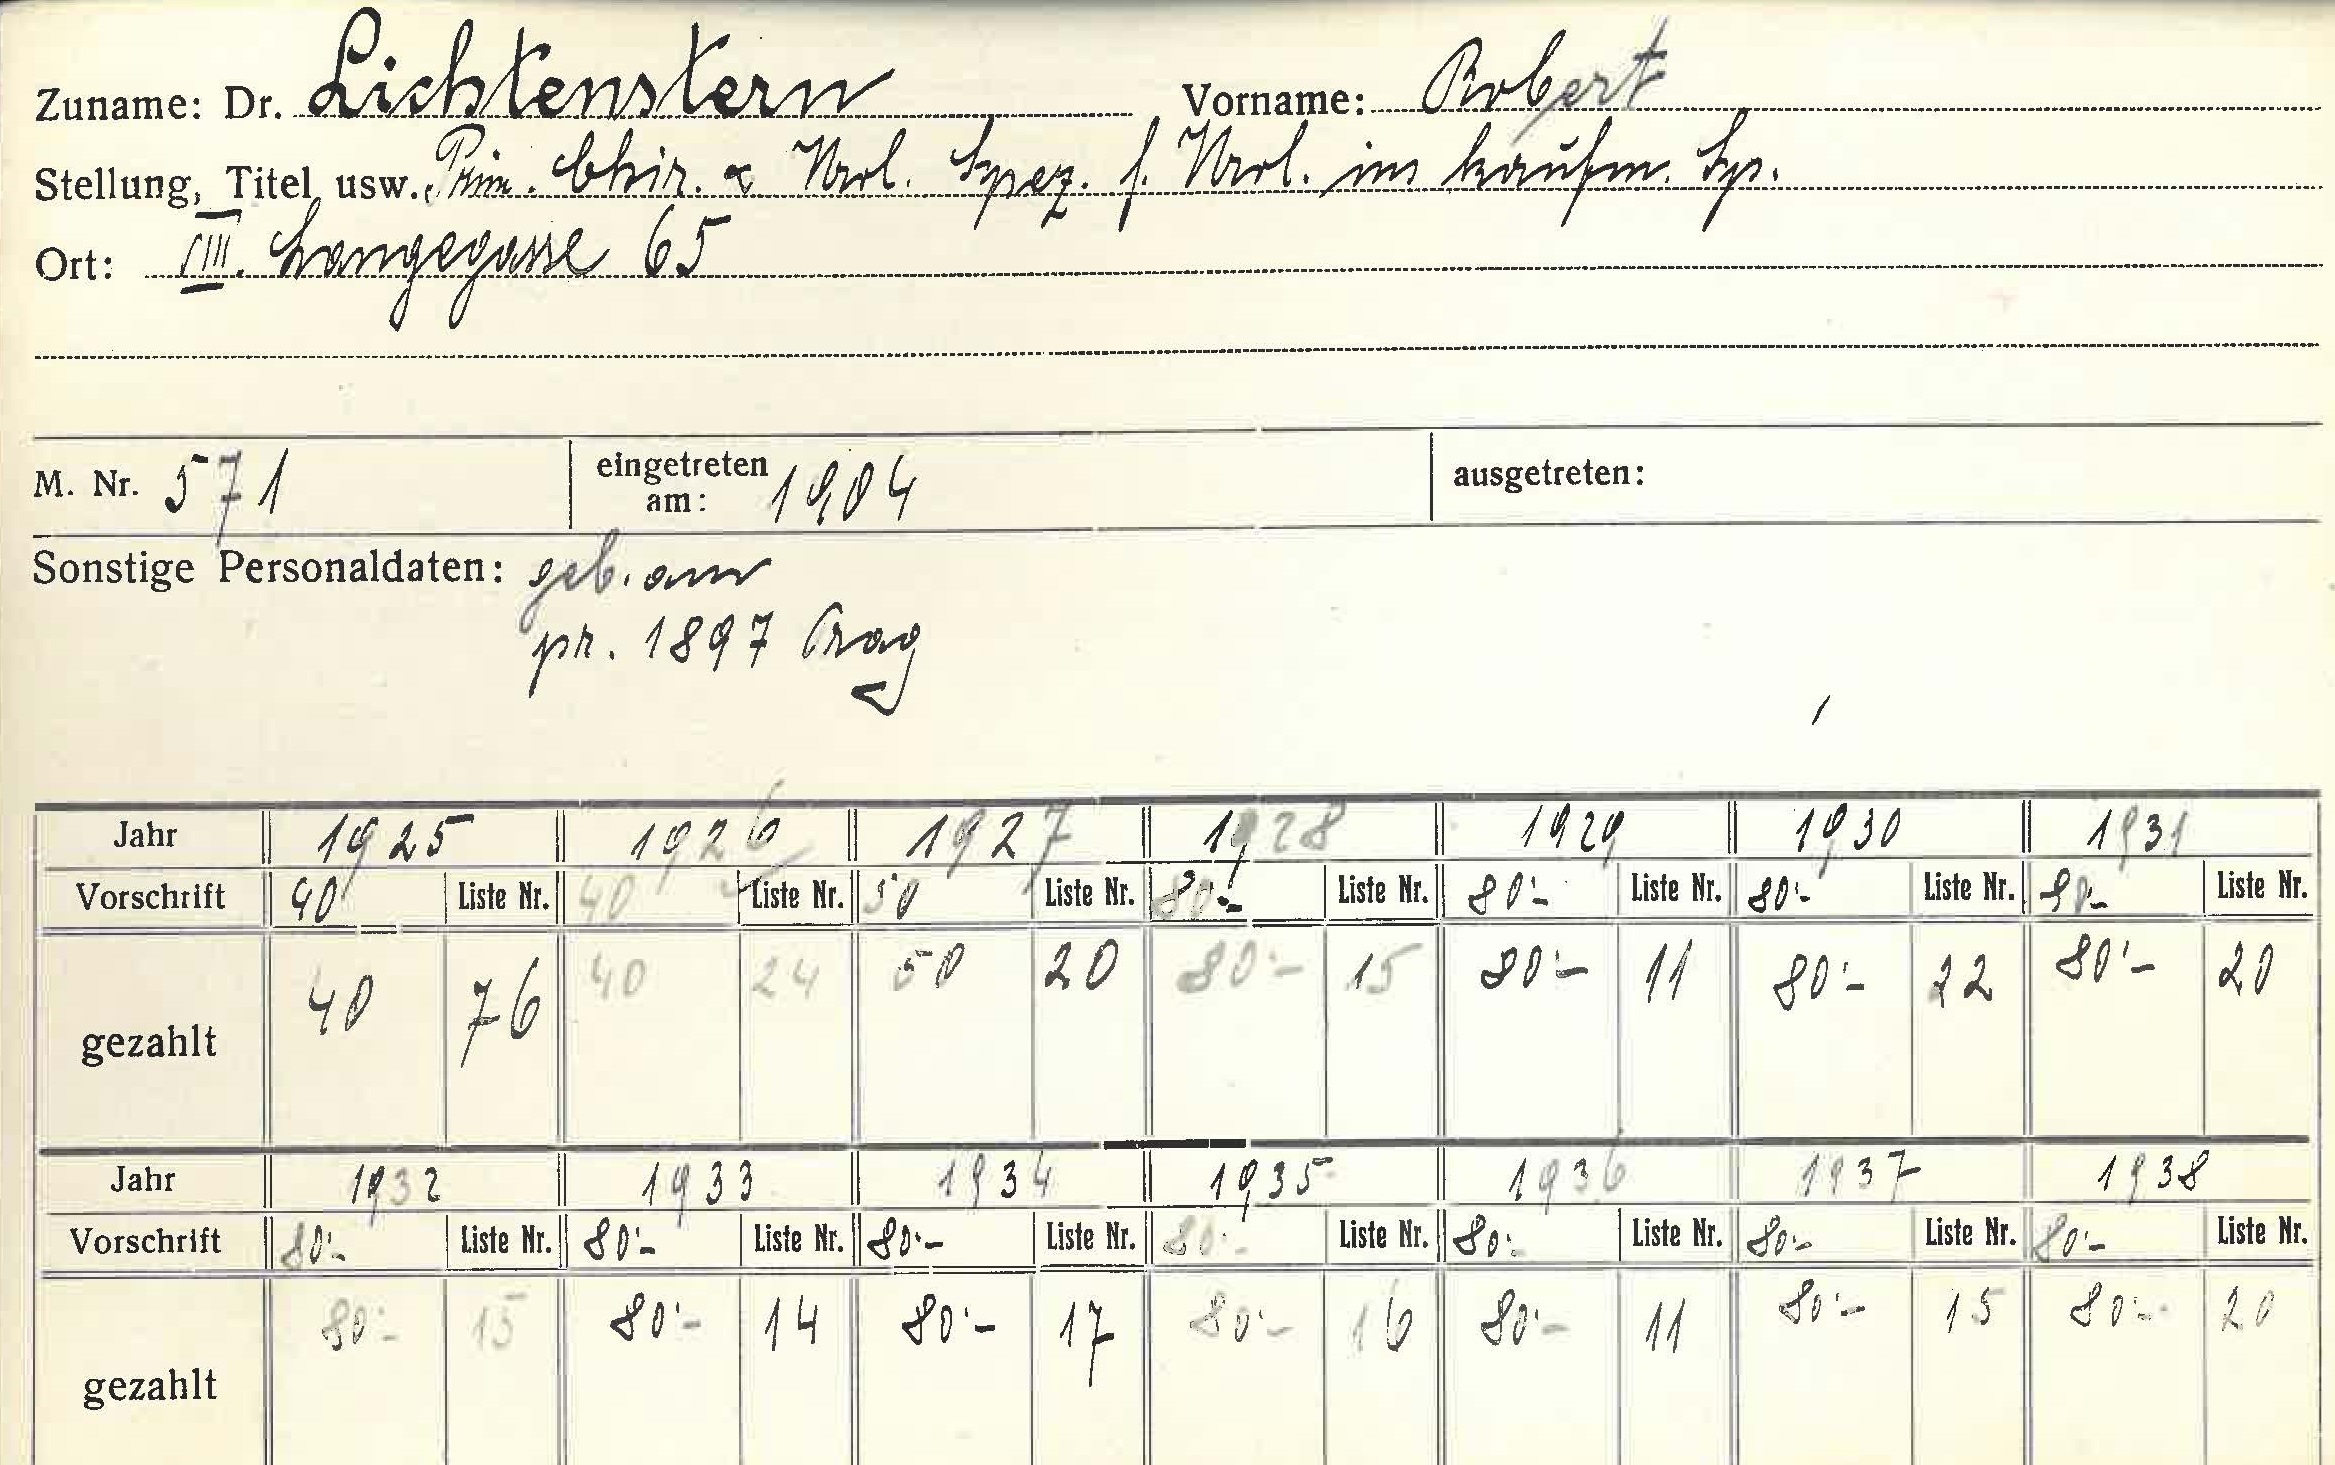 Zuname: Dr. Lichtenstern Vorname: Robert
Stellung, Titel usw. Prim. Chir. & Urol. Spez. f. Urol. im kaufm. Sp.
Ort: VIII. Langegasse 65
M. Nr. 571 eingetreten am: 1904 ausgetreten:
Sonstige Personaldaten: geb. am
pr. 1897 Prag
Jahr 1925 1926 1927 1928 1929 1930 1931
Vorschrift 40 Liste Nr. 40 Liste Nr. 50 Liste Nr. 80·- Liste Nr. 80·- Liste Nr. 80·- Liste Nr. 80·- Liste Nr.
gezahlt 40 76 40 24 50 20 80·- 15 80·- 11 80·- 22 80·- 20
Jahr 1932 1933 1934 1935 1936 1937 1938
Vorschrift 80·- Liste Nr. 80·- Liste Nr. 80·- Liste Nr. 80·- Liste Nr. 80·- Liste Nr. 80·- Liste Nr. 80·- Liste Nr.
gezahlt 80·- 15 80·- 14 80·- 17 80·- 16 80·- 11 80·- 15 80·- 20